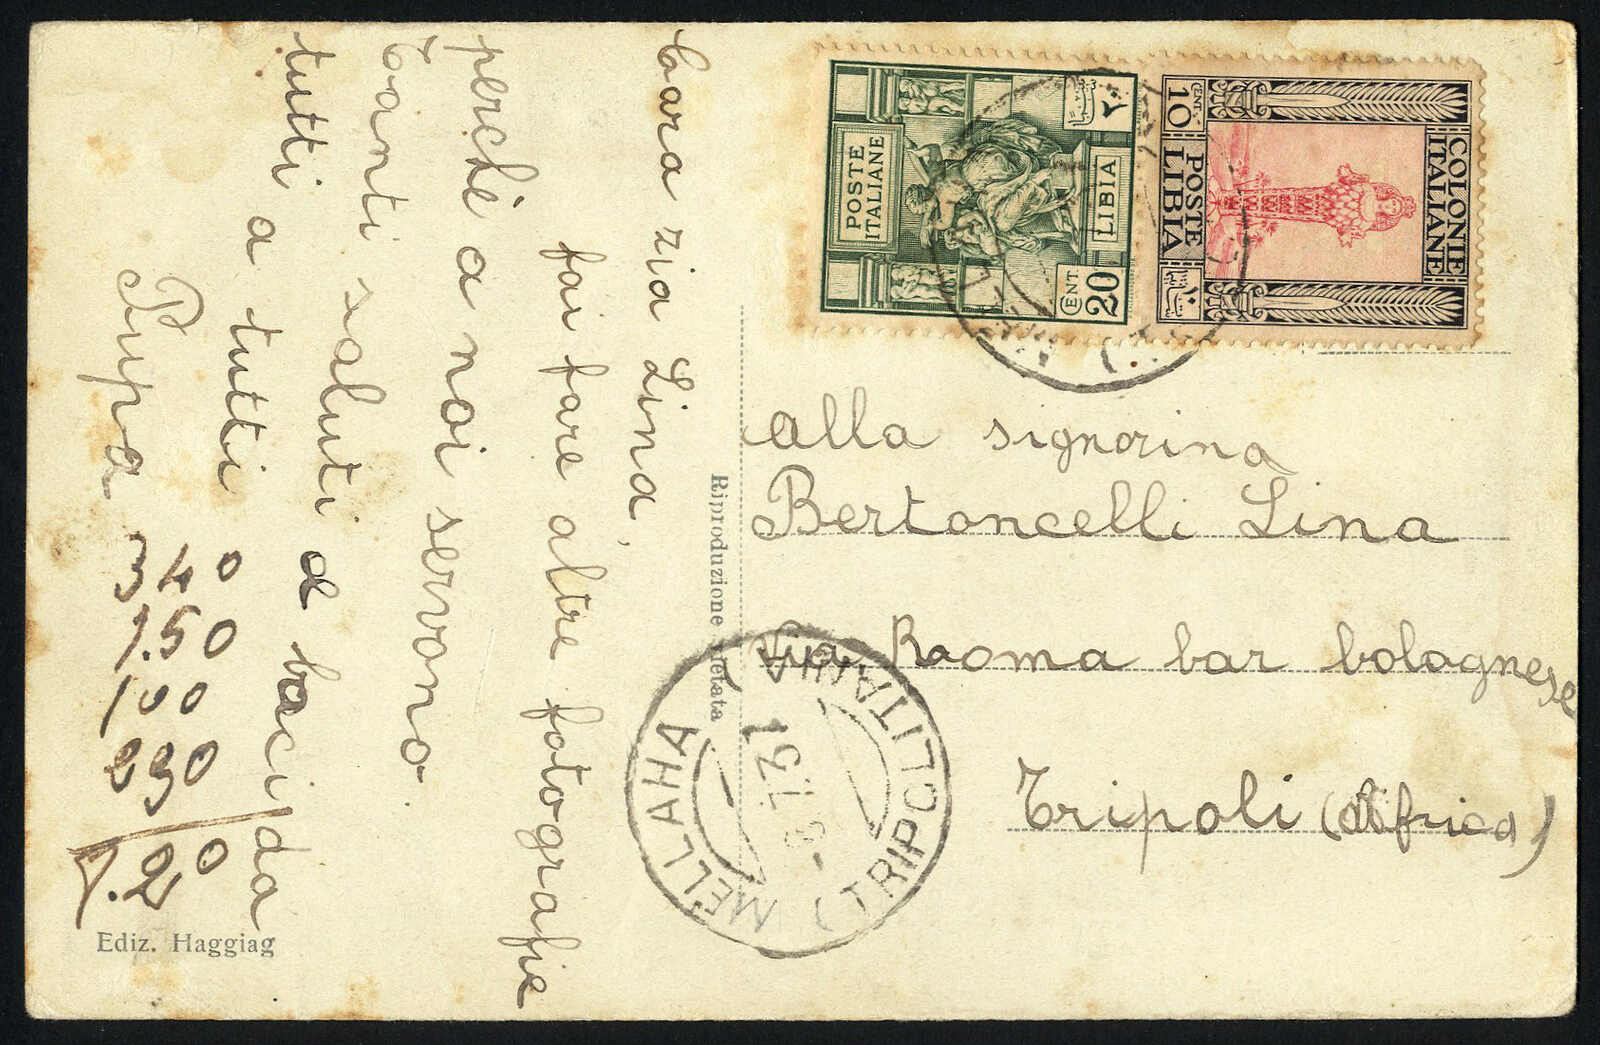 Cara zia Lina,
fai fare altre fotografie
perchè a noi servono.
Tanti saluti e baci da
tutti a tutti
Pupa
340
1.50
100
230
7.20
Ediz. Haggiag
Riproduzione vietata
POSTE
ITALIANE
LIBIA
CENT.
20
٢٠
COLONIE
ITALIANE
CENT.
10
POSTE
LIBIA
١٠
alla signorina
Bertoncelli Lina
Via Roma bar bolognese
Tripoli (Africa)
MELLAHA
(TRIPOLITANIA